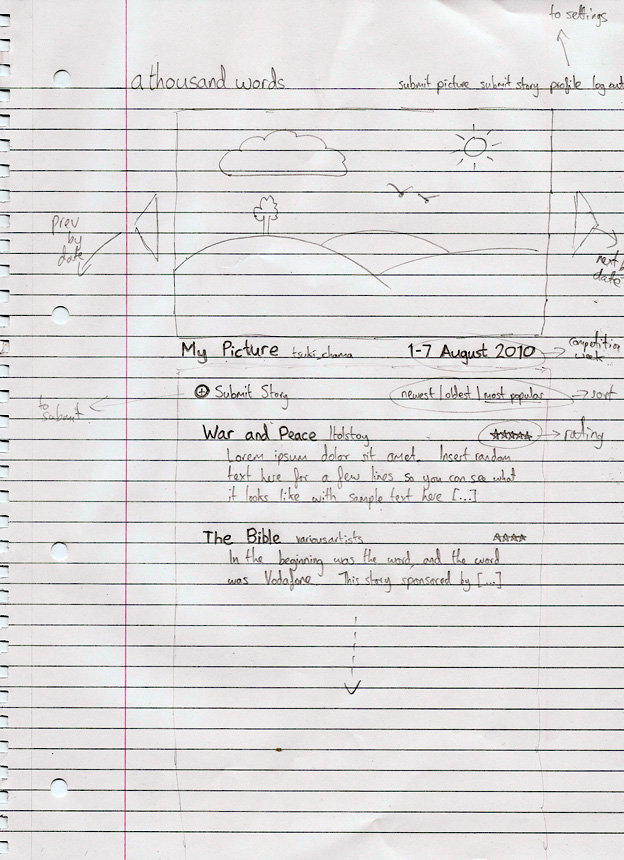 to settings
a thousand words
submit picture submit story profile log out
prev
by
date
next b
date
My Picture tsuki_chama
1-7 August 2010
competition
week
to
submit
+ Submit Story
newest | oldest | most popular
sort
War and Peace ltolstoy
rating
Lorem ipsum dolor sit amet. Insert random
text here for a few lines so you can see what
it looks like with sample text here [...]
The Bible variousartists
In the beginning was the word, and the word
was Vodafone. This story sponsored by [...]